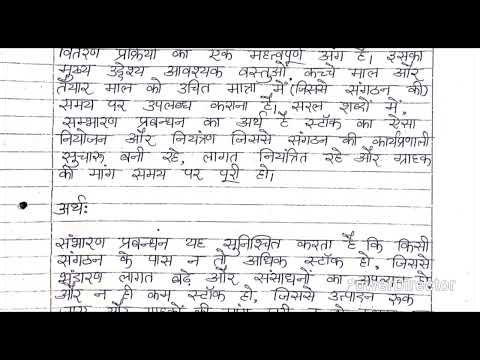 वितरण प्रक्रिया का एक महत्वपूर्ण अंग है। इसका
मुख्य उद्देश्य आवश्यक वस्तुओं, कच्चे माल और
तैयार माल को उचित मात्रा में (जिससे संगठन की)
समय पर उपलब्ध कराना है। सरल शब्दों में,
सम्भारण प्रबन्धन का अर्थ है स्टॉक का ऐसा
नियोजन और नियंत्रण जिससे संगठन की कार्यप्रणाली
सुचारू बनी रहे, लागत नियंत्रित रहे और ग्राहक
की मांग समय पर पूरी हो।
अर्थः
संभारण प्रबन्धन यह सुनिश्चित करता है कि किसी
संगठन के पास न तो अधिक स्टॉक हो, जिससे
भंडारण लागत बढ़े और संसाधनों का
और न ही कम स्टॉक हो, जिससे उत्पादन रुक
PowerDirector